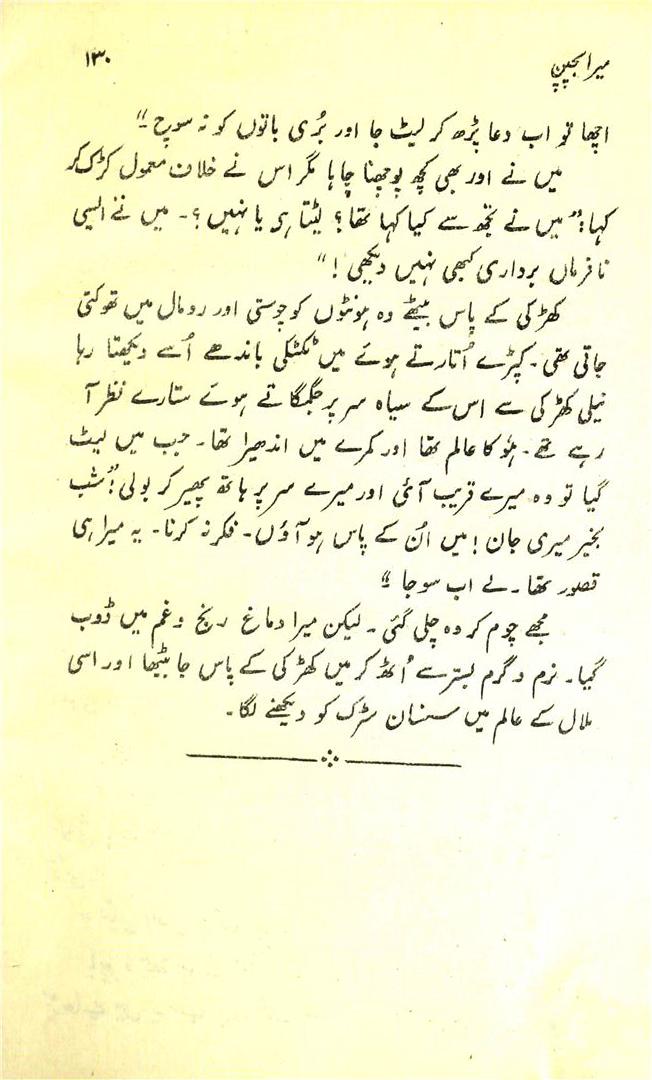 میرا بچپن
۱۳۰
اچھا تو اب دعا پڑھ کر لیٹ جا اور بُری باتوں کو نہ سوچ۔"
میں نے اور بھی کچھ پوچھنا چاہا مگر اس نے خلاف معمول کڑک کر
کہا: "میں نے تجھ سے کیا کہا تھا؟ لیٹتا ہی یا نہیں؟۔ میں نے ایسی
نافرماں برداری کبھی نہیں دیکھی!"
کھڑکی کے پاس بیٹھے وہ ہونٹوں کو چوستی اور رومال میں تھوکتی
جاتی تھی۔ کپڑے اُتارتے ہوئے میں ٹکٹکی باندھے اُسے دیکھتا رہا
نیلی کھڑکی سے اس کے سیاہ سر پر جگمگاتے ہوئے ستارے نظر آ
رہے تھے۔ ہُو کا عالم تھا اور کمرے میں اندھیرا تھا۔ جب میں لیٹ
گیا تو وہ میرے قریب آئی اور میرے سر پر ہاتھ پھیر کر بولی: "شب
بخیر میری جان! میں اُن کے پاس ہو آؤں۔ فکر نہ کرنا۔ یہ میرا ہی
قصور تھا۔ لے اب سو جا۔"
مجھے چوم کر وہ چلی گئی۔ لیکن میرا دماغ رنج و غم میں ڈوب
گیا۔ نرم و گرم بستر سے اُٹھ کر میں کھڑکی کے پاس جا بیٹھا اور اسی
ملال کے عالم میں سنسان سڑک کو دیکھنے لگا۔